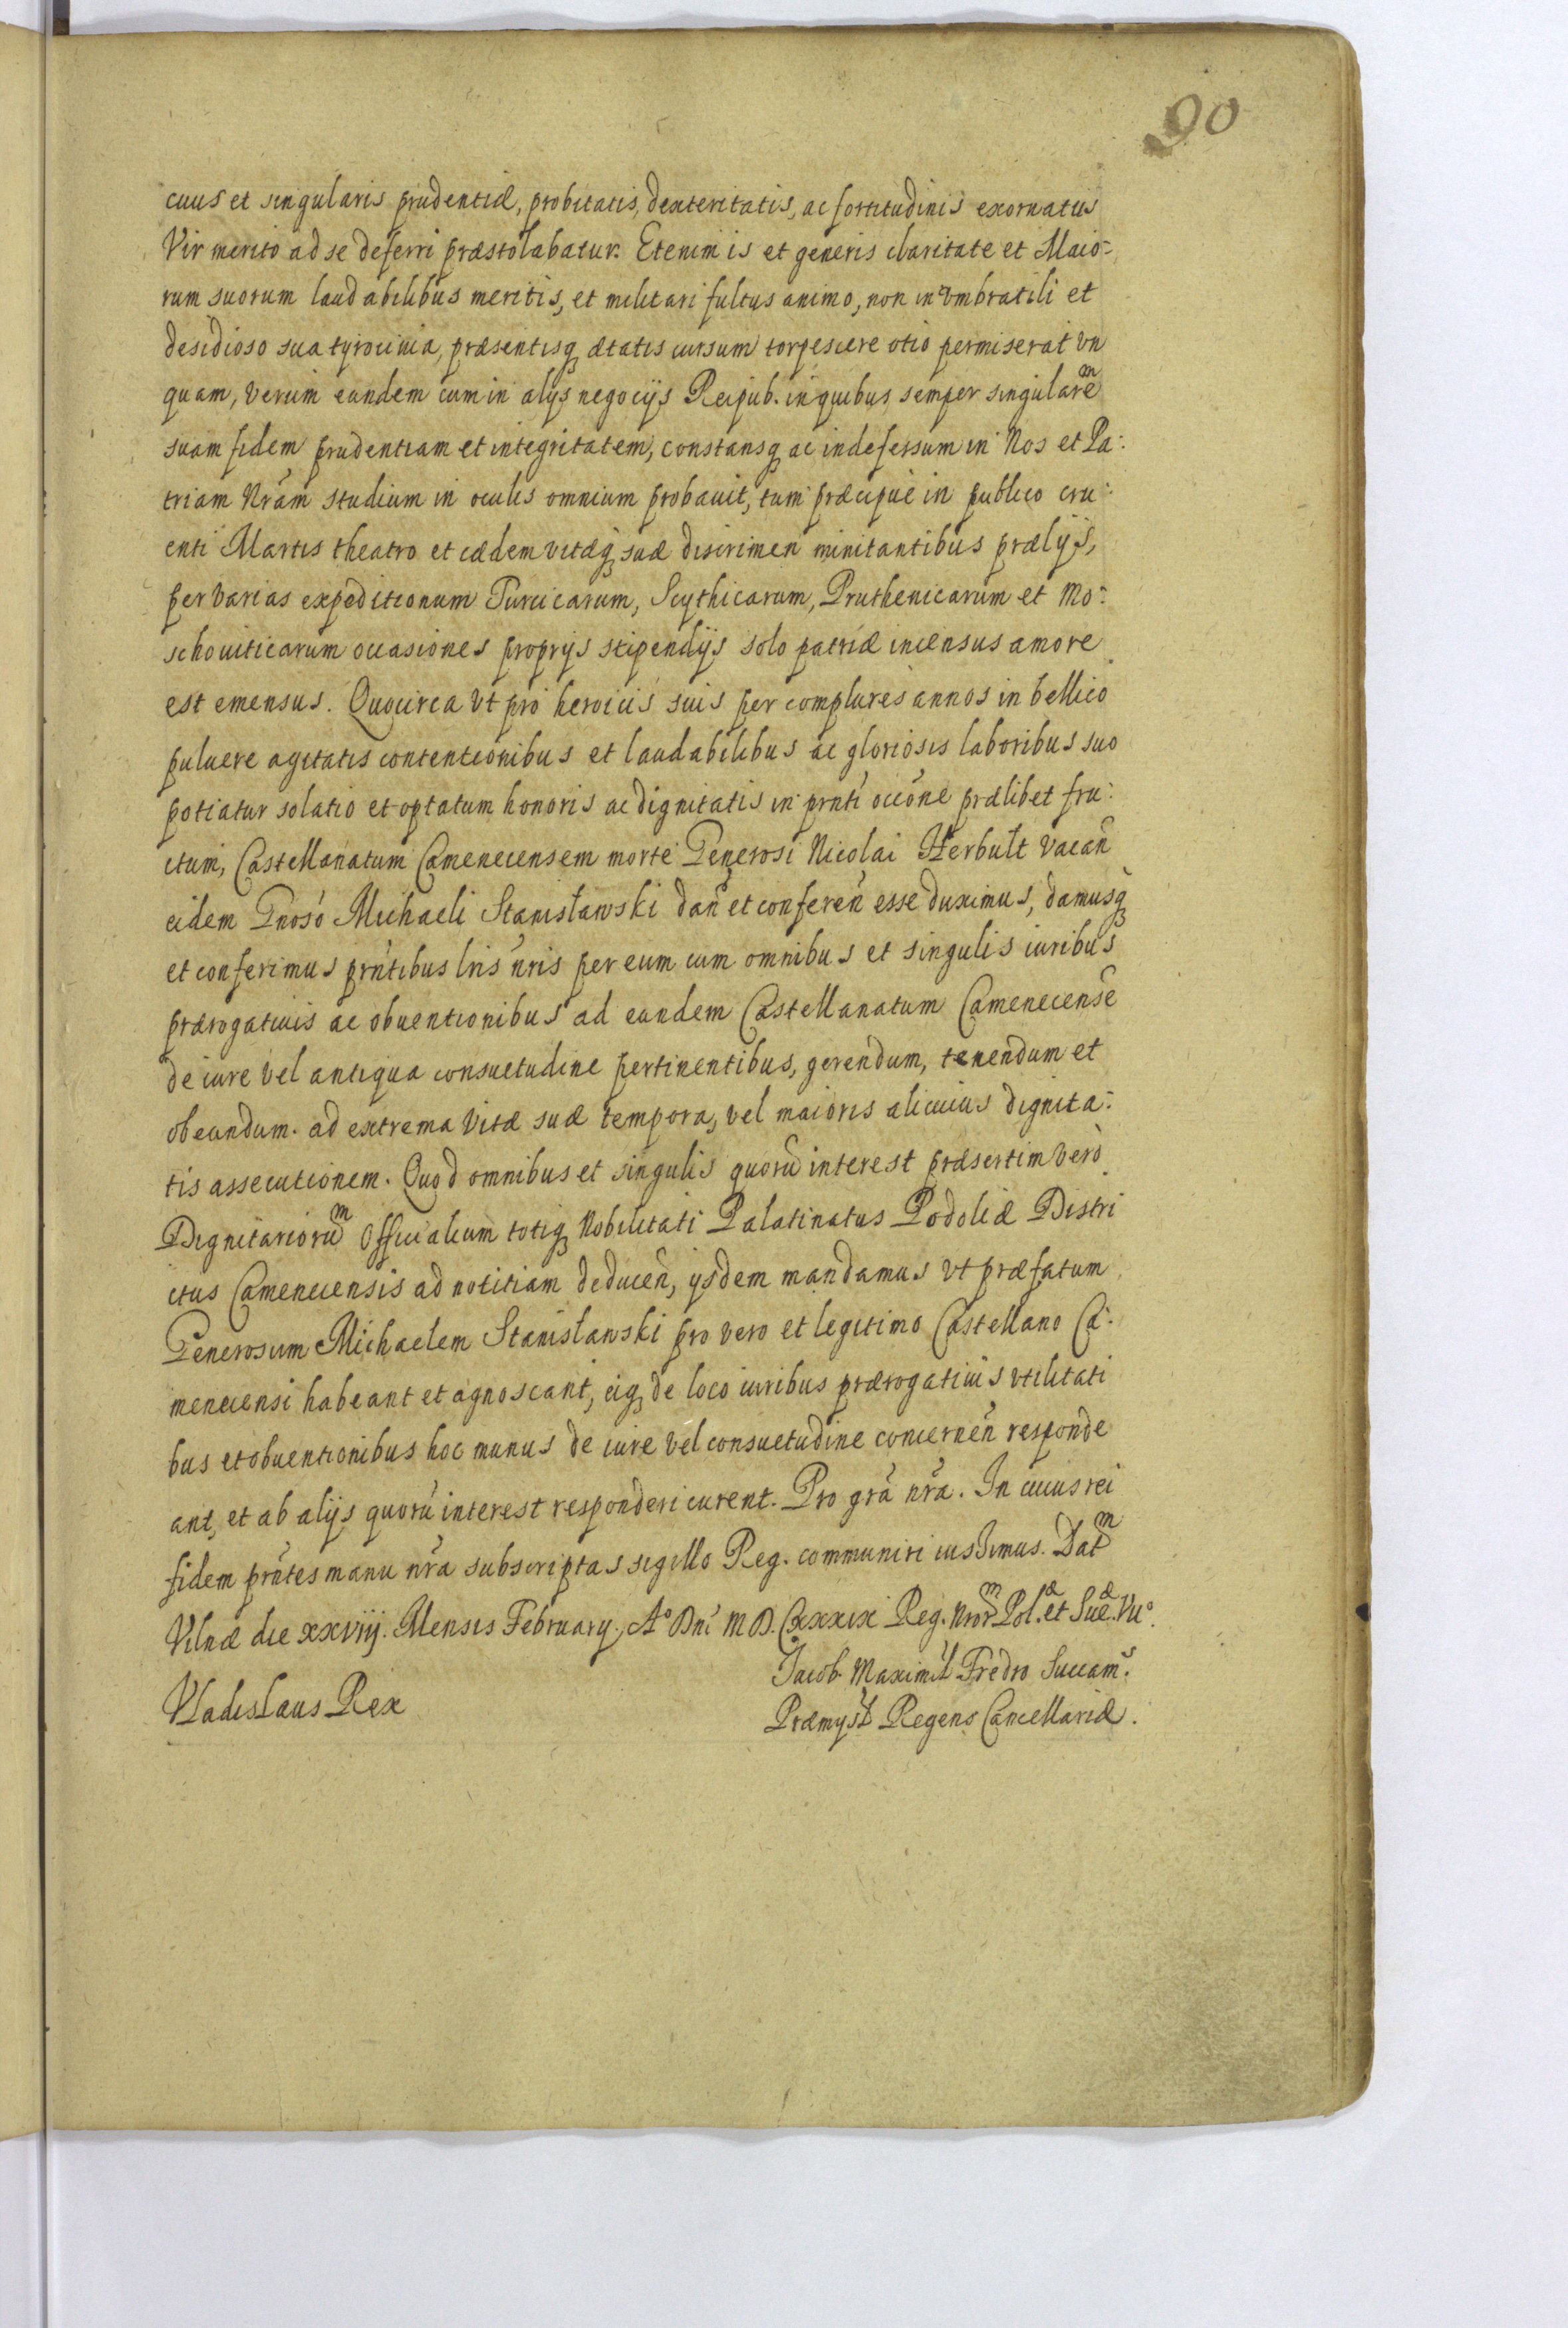 90
cuus et singularis prudentiæ, probitatis, dexteritatis, ac fortitudinis exornatus
Vir merito ad se deferri præstolabatur. Etenim is et generis claritate et Maio-
rum suorum laudabilibus meritis, et militari fultus animo, non in vmbratili et
desidioso sua tyrocinia, præsentisq ætatis cursum torpescere otio permiserat vn
quam, verùm eundem cum in alijs negocijs Reipub. in quibus semper singularem
suam fidem prudentiam et integritatem, constansq ac indefessum in Nos et Pa:
triam Nrãm studium in oculis omnium probauit, tum præcipuè in publico cru:
enti Martis theatro et cædem vitæq suæ discrimen minitantibus prælijs,
per varias expeditionum Turcicarum, Scythicarum, Pruthenicarum et Mo:
schouiticarum occasiones proprijs stipendijs solo patriæ incensus amore
est emensus. Quocirca vt pro heroicis suis per complures annos in bellico
puluere agitatis contentionibus et laudabilibus ac gloriosis laboribus suo
potiatur solatio et optatum honoris ac dignitatis in prñti occõne prælibet fru:
ctum, Castellanatum Camenecensem morte Generosi Nicolai Herbult vacañ
eidem Gnoso Michaeli Stanisławski dañ et confereñ esse duximus, damusq
et conferimus prñtibus lris ñris per eum cum omnibus et singulis iuribus
prærogatiuis ac obuentionibus ad eundem Castellanatum Camenecensẽ
de iure vel antiqua consuetudine pertinentibus, gerendum, tenendum et
obeundum. ad extrema vitæ suæ tempora, vel maioris alicuius dignita:
tis assecutionem. Quod omnibus et singulis quorũ interest præsertim verò
Dignitariorum Officialium totiq Nobilitati Palatinatus Podoliæ Distri
ctus Camenecensis ad notitiam deduceñ, ijsdem mandamus vt præfatum
Generosum Michaelem Stanisławski pro vero et legitimo Castellano Ca:
menecensi habeant et agnoscant, eiq de loco iuribus prærogatiuis vtilitati
bus et obuentionibus hoc munus de iure vel consuetudine concerneñ responde
ant, et ab alijs quorũ interest responderi curent. Pro grã nrã. In cuius rei
fidem prñtes manu nrã subscriptas sigillo Reg. communiri iussimus. Datm
Vilnæ die xxviij. Mensis February. Aº Dni M D. Cxxxix Reg. Nrorm Pol.æ et Sueæ. Vuº.
Jacob Maximil Fredro Succams.
Vladislaus Rex
Præmysl Regens Cancellariæ.